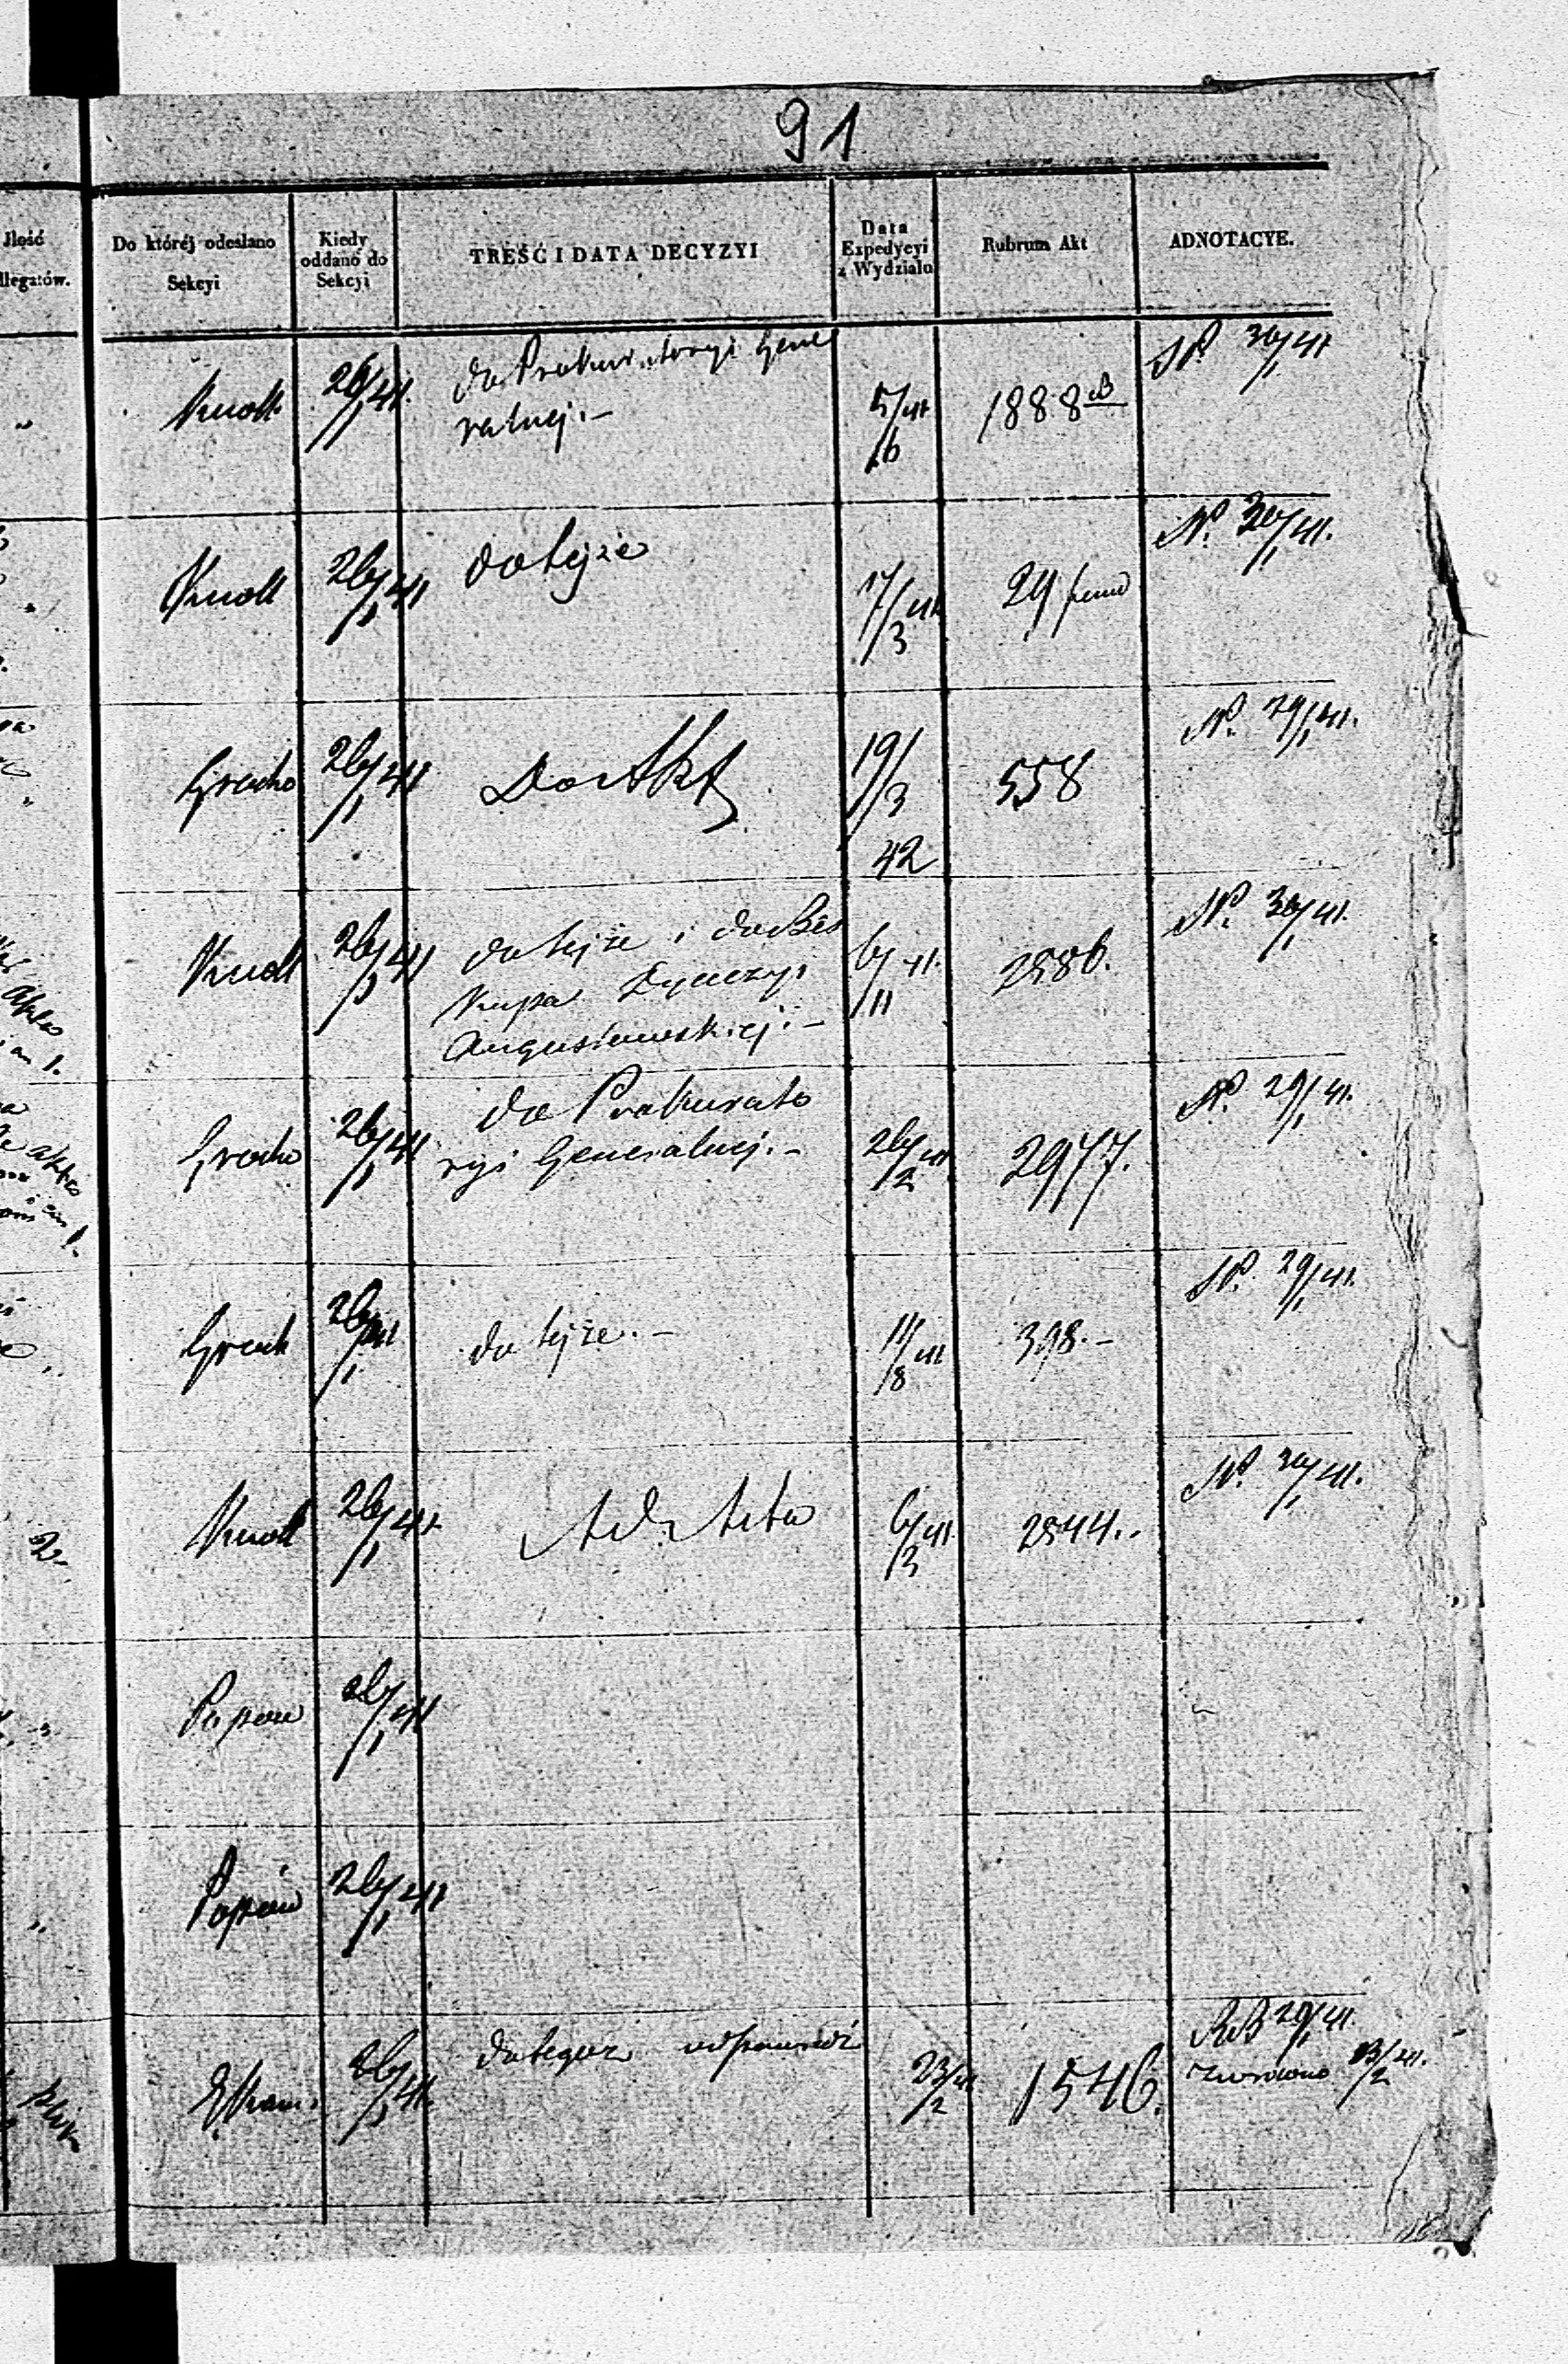 91
Ilość
llegatów.
Do któréj odesłano
Sekcyi
Kiedy
oddano do
Sekcyi
TREŚĆ I DATA DECYZYI
Data
Expedycyi
z Wydziału
Rubrum Akt
ADNOTACYE.
Knoll 26/1 41. do Prokuratoryi Gene
ralnej.— 5/6 41 1888 B N. 30/1 41
Knoll 26/1 41 do tejże 17/3 41 29 N. 30/1 41.
Grocho 26/1 41 Do Akt 19/3
42 558 N. 29/1 41.
Knoll 26/1 41 do tejże i do Bis
kupa Dyecezyi
Augustowskiej.— 6/11 41. 2586. N. 30/1 41.
Grocho 26/1 41 do Prokurato
ryi Generalnej.— 26/2 41 2977. N. 29/1 41.
Groch 26/1 41 do tejże.— 11/8 41 398.— N. 29/1 41.
Knoll 26/1 41 Ad Acta 6/3 41 2544. N. 30/1 41.
2
26/1 41
26/1 41
26/1 41. do tegoż odpowiedź 23/2 41 1546. 29/1 41.
zwrócono 23/2 41.